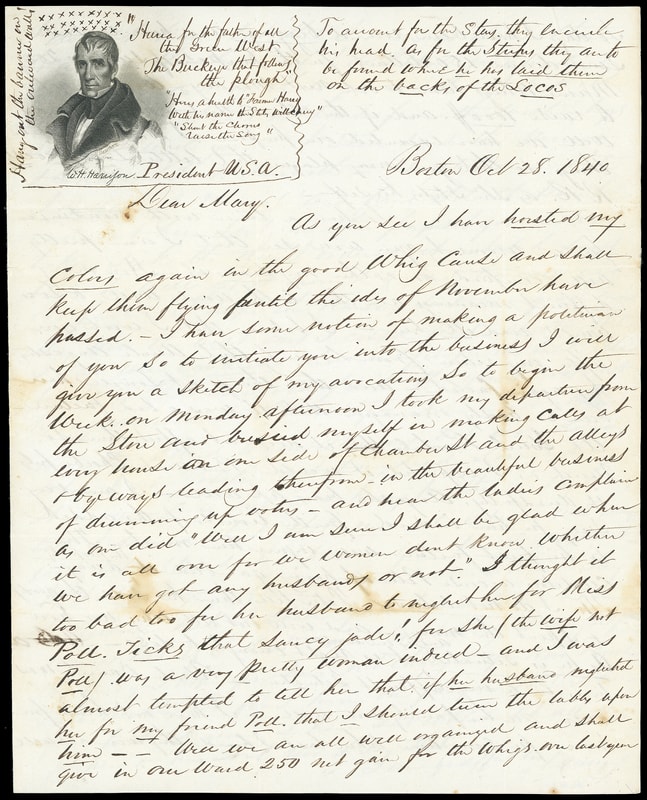 Hang out the banner on
the outward walls!
"Hurra for the father of all
the Green West
The Buckeye that follows
the plough"
"Heres a health to Farmer Harry
With his name the State will ring"
"Shout the Chorus
raise the Song"
W.H. Harrison. President U.S.A.
To account for the Stars they encircle
his head as for the Stripes they are to
be found where he has laid them
on the backs of the Locos
Boston Oct 28. 1840
Dear Mary.
As you see I have hoisted my
Colors again in the good Whig Cause and shall
keep them flying until the ides of November have
passed. — I have some notion of making a politician
of you So to initiate you into the business I will
give you a sketch of my avocations So to begin the
Week.. on Monday afternoon I took my departure from
the Store and busied myself in making calls at
every house on one side of Chamber St and the alleys
& bye ways leading therefrom - in the beautiful business
of drumming up voters - and hear the ladies complain
as one did "Well I am sure I shall be glad when
it is all over for we women dont know whether
we have got any husbands or not." I thought it
too bad too for her husband to neglect her for Miss
Poll. Ticks that saucy jade! for she (the wife not
Poll) was a very pretty woman indeed - and I was
almost tempted to tell her that if her husband neglected
her for my friend Poll. that I should turn the tables upon
him — — Well we are all well organized and shall
give in our Ward 250 net gain for the Whigs over last year